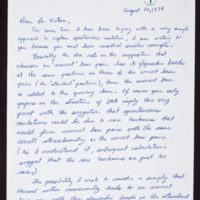 August 20, 1979
Dear Dr Watson,
For some time I have been toying with a very simple
approach to explain spontaneous mutation. I am writing to
you because you must have considered similar concepts.
Basically the idea is the suggestion that
whenever an incorrect base pair has its glycosidic bonds
at the same positions as those of the correct base
pairs (the standard positions), then the incorrect base
is added to the growing chain. Of course your early
papers on the structure of DNA imply this very
point with the suggestion that spontaneous
mutations could be due to rare tautomers that
would form incorrect base pairs with the same
overall stereochemistry as the correct base pairs
(as I understand it, subsequent calculations
suggest that the rare tautomers are just too
rare.)
The possibility I wish to consider is simply that
thermal motion occasionally leads to an incorrect
base pair with their glycosidic bonds in the standard